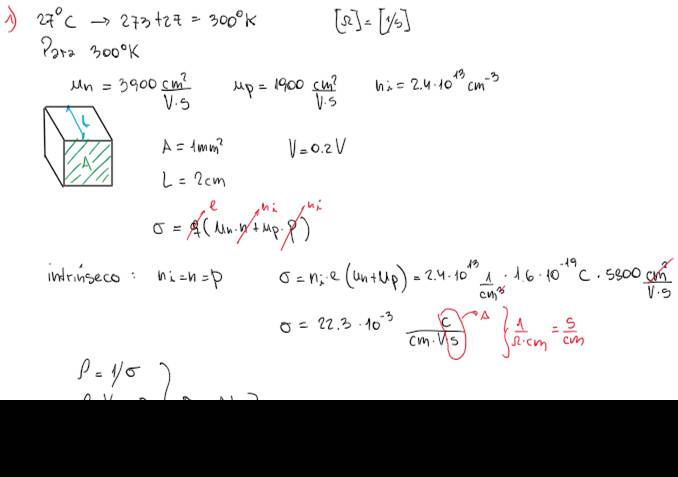 1) 27°C → 273+27 = 300°K [Ω] = [1/S]
Para 300°K
μn = 3900 cm²/V·s μp = 1900 cm²/V·s ni = 2.4·10¹³ cm⁻³
L
A
A = 1mm² V = 0.2V
L = 2cm
e ni ni
σ = q(μn·n + μp·p)
intrínseco : ni = n = p σ = ni·e (un+up) = 2.4·10¹³ 1/cm³ · 1.6·10⁻¹⁹ C · 5800 cm²/V·s
σ = 22.3·10⁻³ C/cm·V·s A } 1/Ω·cm = S/cm
ρ = 1/σ